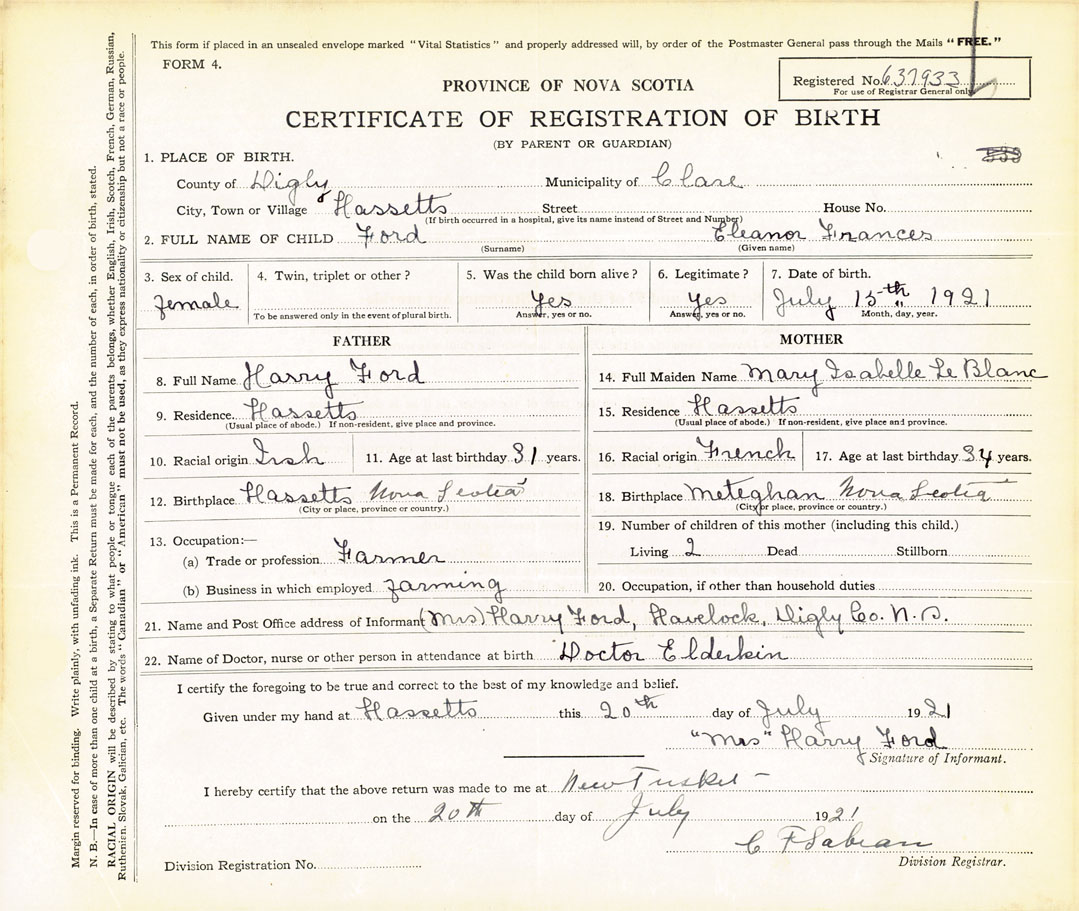 This form if placed in an unsealed envelope marked "Vital Statistics" and properly addressed will, by order of the Postmaster General pass through the Mails "FREE."
FORM 4.
Registered No. 637933
For use of Registrar General only
PROVINCE OF NOVA SCOTIA
CERTIFICATE OF REGISTRATION OF BIRTH
(BY PARENT OR GUARDIAN)
1. PLACE OF BIRTH.
County of Digby Municipality of Clare
City, Town or Village Hassetts Street House No.
(If birth occurred in a hospital, give its name instead of Street and Number)
2. FULL NAME OF CHILD Ford Eleanor Frances
(Surname) (Given name)
3. Sex of child. 4. Twin, triplet or other? 5. Was the child born alive? 6. Legitimate? 7. Date of birth.
female Yes Yes July 15th 1921
To be answered only in the event of plural birth. Answer, yes or no. Answer, yes or no. Month, day, year.
FATHER
8. Full Name Harry Ford
9. Residence. Hassetts
(Usual place of abode.) If non-resident, give place and province.
10. Racial origin Irsh 11. Age at last birthday 31 years.
12. Birthplace Hassetts Nova Scotia
(City or place, province or country.)
13. Occupation:—
(a) Trade or profession Farmer
(b) Business in which employed farming
MOTHER
14. Full Maiden Name Mary Isabelle Le Blanc
15. Residence Hassetts
(Usual place of abode.) If non-resident, give place and province.
16. Racial origin French 17. Age at last birthday 34 years.
18. Birthplace Meteghan Nova Scotia
(City or place, province or country.)
19. Number of children of this mother (including this child.)
Living 2 Dead Stillborn
20. Occupation, if other than household duties
21. Name and Post Office address of Informant (Mrs) Harry Ford, Havelock, Digby Co. N.S.
22. Name of Doctor, nurse or other person in attendance at birth Doctor Elderkin
I certify the foregoing to be true and correct to the best of my knowledge and belief.
Given under my hand at Hassetts this 20th day of July 1921
"Mrs" Harry Ford
Signature of Informant.
I hereby certify that the above return was made to me at New Tusket -
on the 20th day of July 1921
C F Sabean
Division Registrar.
Division Registration No.
Margin reserved for binding. Write plainly, with unfading ink. This is a Permanent Record.
N. B.—In case of more than one child at a birth, a Separate Return must be made for each, and the number of each, in order of birth, stated.
RACIAL ORIGIN will be described by stating to what people or tongue each of the parents belongs, whether English, Irish, Scotch, French, German, Russian,
Ruthenian, Slovak, Galician, etc. The words "Canadian" or "American" must not be used, as they express nationality or citizenship but not a race or people